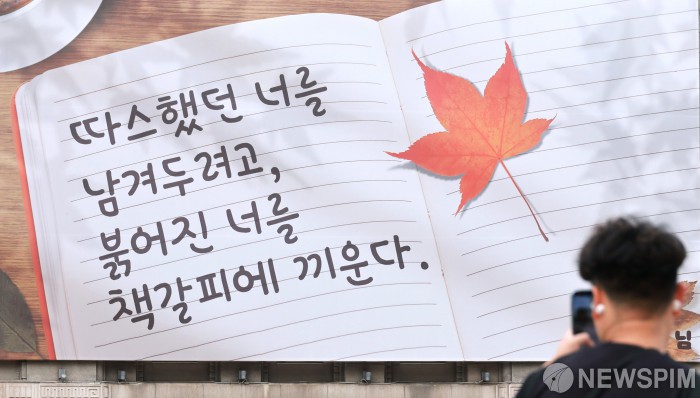 따스했던 너를
남겨두려고,
붉어진 너를
책갈피에 끼운다.
님
NEWSPIM